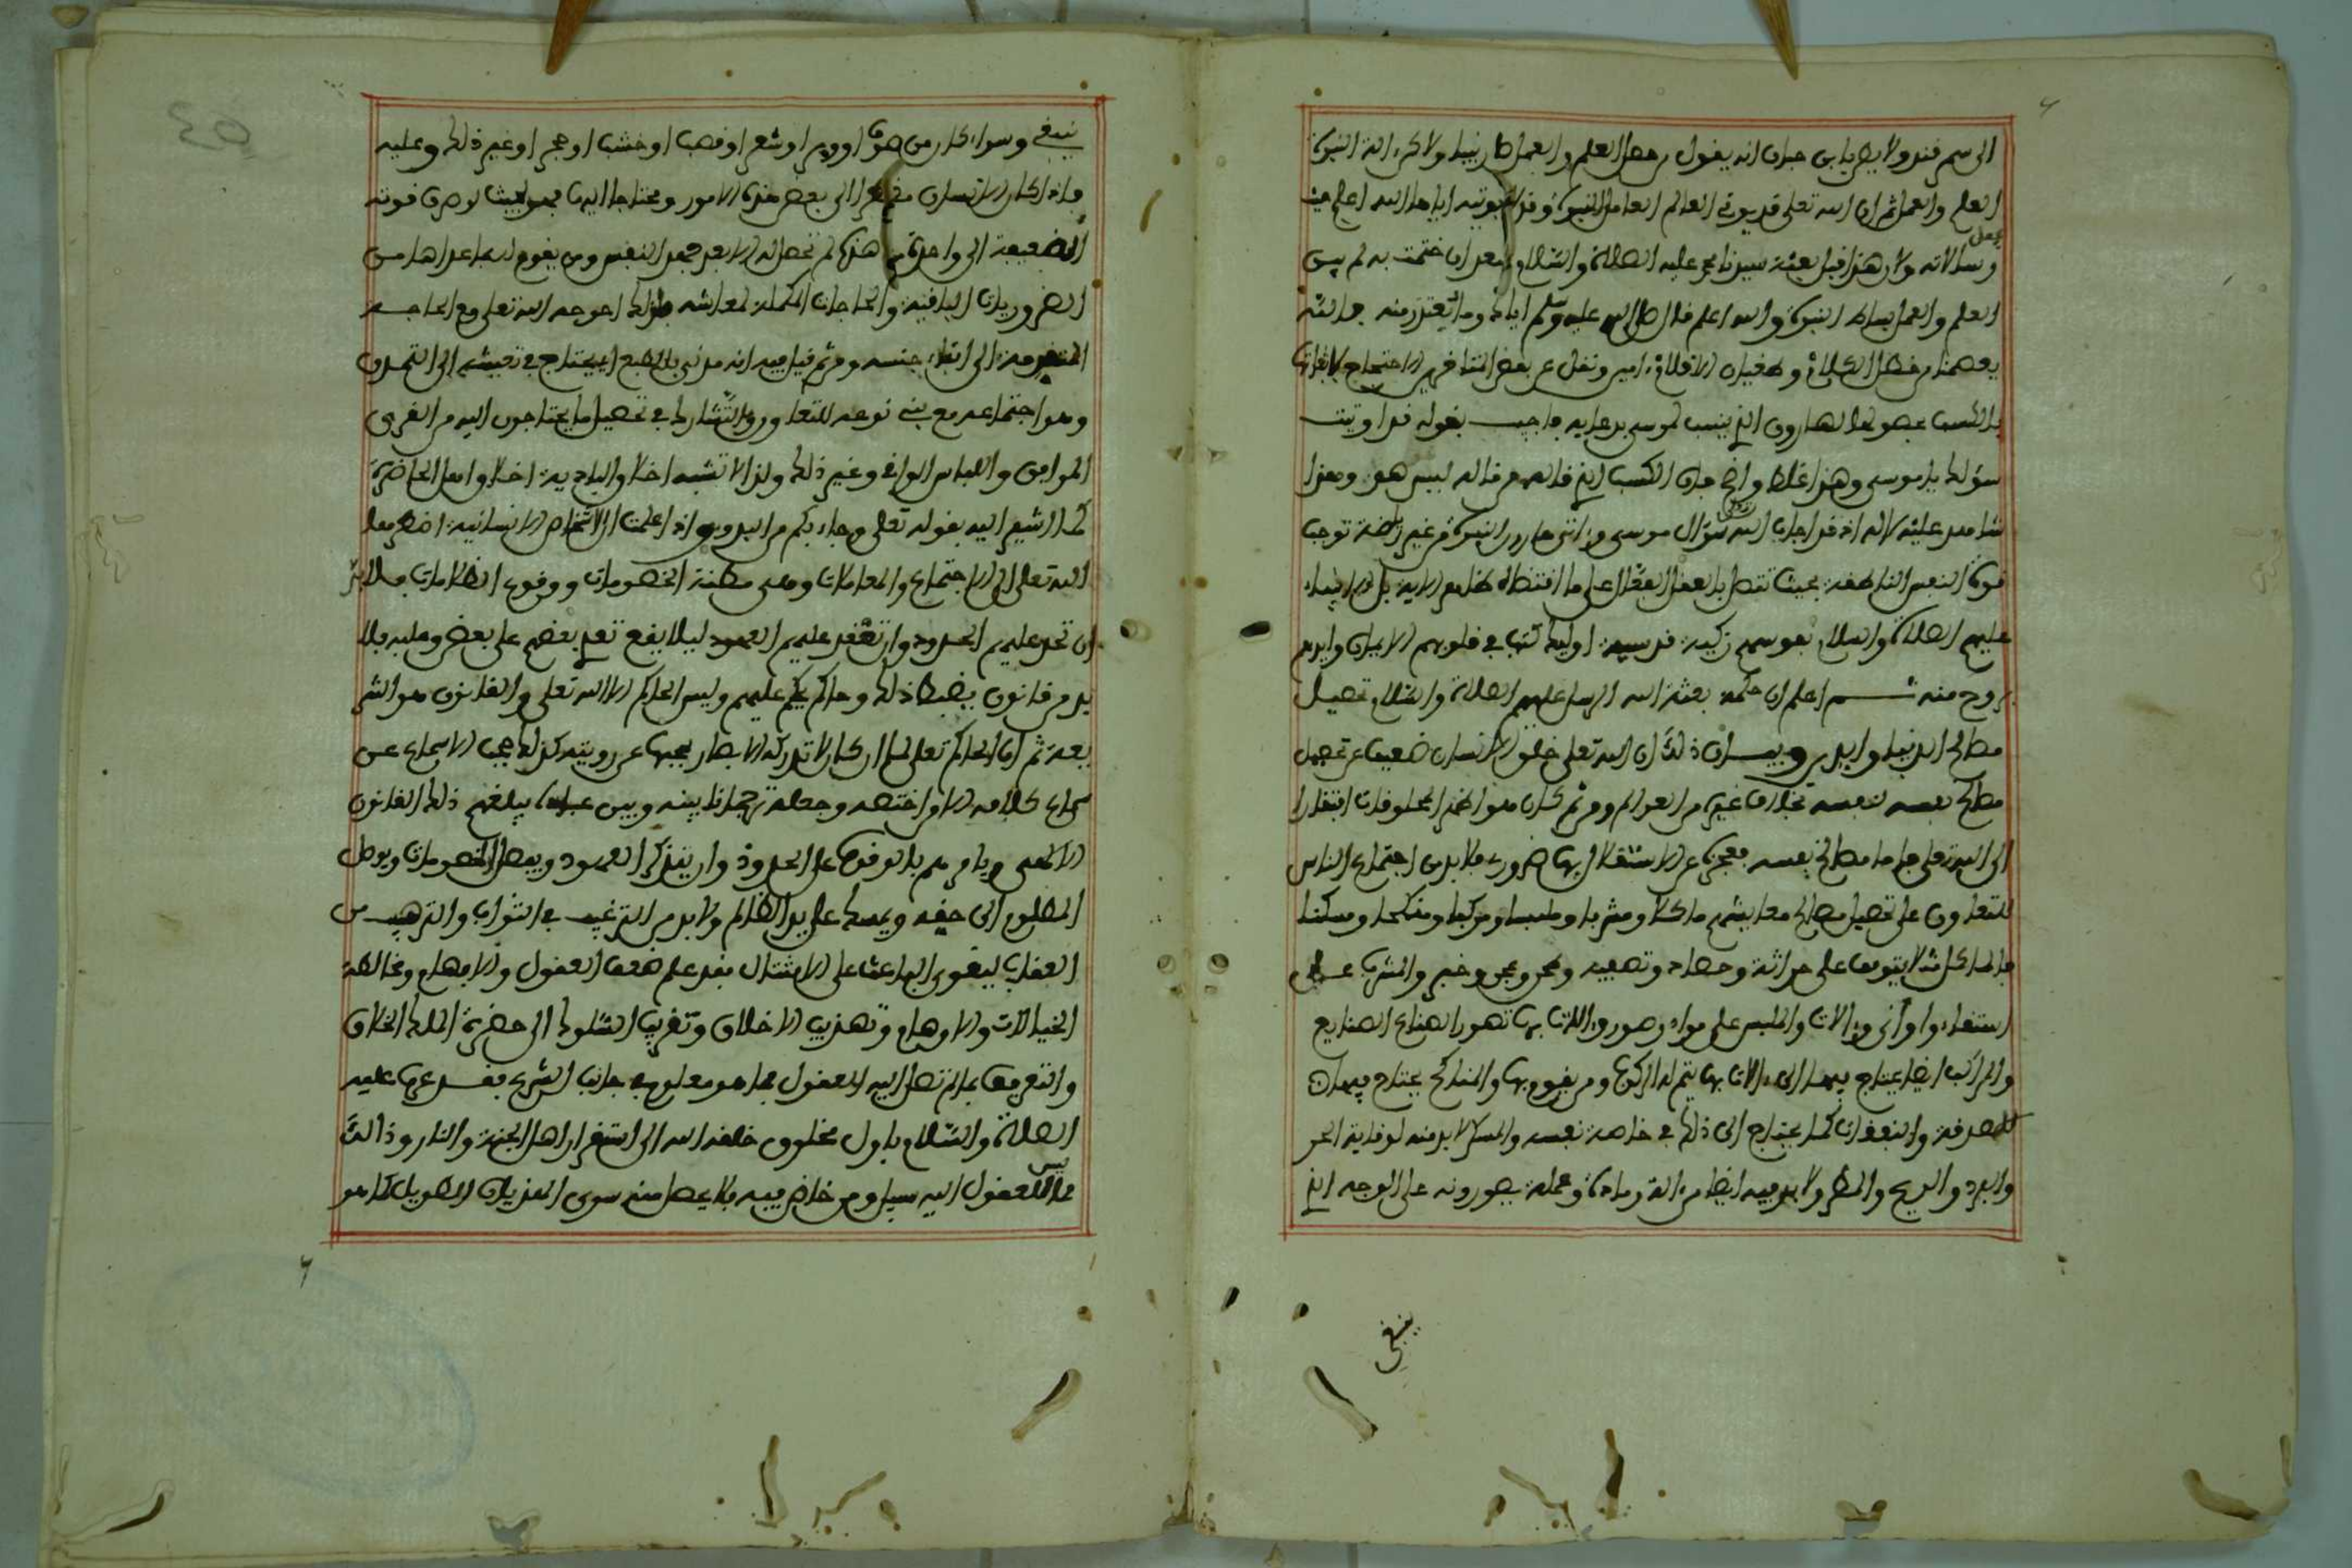 الى سمرقند ولا يظن بابن حبان انه يقول من حصل العلم والعمل كان نبيا ولاكن الة النبوة
العلم والعمل ثم ان الله تعلى قد يوتي العالم العامل النبوة وقد لا يوتيه اياها الله اعلم حيث
يجعل
رسالاته ولان هذا قبل بعثة سيدنا محمد عليه الصلاة والسلام وبعد ان ختمت به لم يبق
العلم والعمل بساط النبوة والله اعلم قال صلى الله عليه وسلم اياك وما يعتذر منه جاء الله
يعصمنا من خطل الكلام وطغيان الاقلام امين ونقل عن بعض ائتنا في الاحتجاج
بالكسب بحصولها لهارون الذي ينسب لموسى بدعايه فاجيب بقوله قد اوتيت
سؤلك يا موسى وهذا غلط واضح فان الكسب الذي قاله من قاله ليس هو وهذا
شاهد عليه لا له اذ قد اجاب الله سؤال موسى واتى هارون النبوة من غير رياضة توجب
قوة النفس الناطقة بحيث تتصل بالعقل الفعال على ما اقتضاه ظاهر الاية بل الانبياء
عليهم الصلاة والسلام نفوسهم زكية قدسية اوليك كتب في قلوبهم الايمان وايدهم
بروح منه ثم اعلم ان حكمة بعثة الله الرسل عليهم الصلاة والسلام تحصيل
مصالح الدنيا والدين وبيان ذلك ان الله تعلى خلق الانسان ضعيفا عن تحصيل
مصالح نفسه بنفسه بخلاف غيره من العوالم ومن ثم كان هو اظهر المخلوقات افتقارا
الى الله تعلى جاهلا مصالح نفسه فعجزه عن الاستقلال بها ضروري فلا بد من اجتماع الناس
للتعاون على تحصيل مصالح معايشهم ماكلا ومشربا وملبسا ومركبا ومنكحا ومسكنا
فالماكل مثلا يتوقف على حراثة وحصاد وتصفية وطحن وعجن وخبز والمشرب على
استقاء واواني والات والملبس على مواد وصور والات بها تصور الصناع الصنايع
والمراكب ايضا يحتاج فيها الى الات بها يتم له الركوب ومن يقوم بها والمناكح يحتاج فيها الى
للصدقة والنفقات كما يحتاج الى ذلك في خاصة نفسه والمسكن لا بد منه لوقاية الحر
والبرد والريح والمطر ولا بد فيه ايضا من الة ومادة وعملة يصورونه على الوجه الذي
ينبغي
ينبغي وسواء كان من صوف او وبر او شعر او قصب او خشب او حجر او غير ذلك وعليه
فاذا كان الانسان مفتقرا الى بعض هذه الامور ومحتاجا اليها فهو بحيث لو صرف قوته
الضعيفة الى واحدة من هذه لم تحصل له الا بعد جهد النفس ومن يقوم له بما عداها من
الضروريات الباقية والحاجات المكملة لمعاشه فلذلك احوجه الله تعلى مع الحاجة
المتقدمة الى ابناء جنسه ومن ثم قيل فيه انه مدني بالطبع اي يحتاج في تعيشه الى التمدن
وهو اجتماعه مع بني نوعه للتعاون والتشارك في تحصيل ما يحتاجون اليه من القرى
المواهن واللباس الواقي وغير ذلك ولذا لا تشبه اخلاق البادية اخلاق اهل الحاضرة
كما اشير اليه بقوله تعلى وجاء بكم من البدو واذا علمت ان الاشخاص الانسانية اضطرها
الله تعلى الى الاجتماع والمعاملات وهي مظنة الخصومات ووقوع الظلامات فلا بد
ان تحد عليهم الحدود وان تعقد عليهم العهود ليلا يقع تعد بعضهم على بعض وعليه فلا
بد من قانون يضبط ذلك وحاكم يحكم عليهم وليس الحاكم الا الله تعلى والقانون هو الشر
يعة ثم ان الحاكم تعلى لما ان كان لا تدركه الابصار يحجبها عن رويته كذلك يحجب الاسماع عن
سماع كلامه الا من اختصه وجعله ترجمانا بينه وبين عباده يبلغهم ذلك القانون
الالهي ويامرهم بالوقوف على الحدود وان يتذكر العهود ويفصل الخصومات ويوصل
المظلوم الى حقه ويمسك على يد الظالم ولا بد من الترغيب في الثواب والترهيب من
العقاب ليقوى الباعث على الامتثال فقد علم ضعف العقول والافهام ومخالطة
الخيالات والاوهام وتهذيب الاخلاق وتقريب السلوك الى حضرة الملك الخلاق
والتعريف بما لم تصل اليه العقول مما هو معلوم من جانب الشرع فقد عرف عليه
الصلاة والسلام باول مخلوق خلقه الله الى استقرار اهل الجنة والنار وذالك
مما ليس للعقول اليه سبيل ومن خاض فيه فلا يحصل منه سوى الهذيان الطويل كما هو